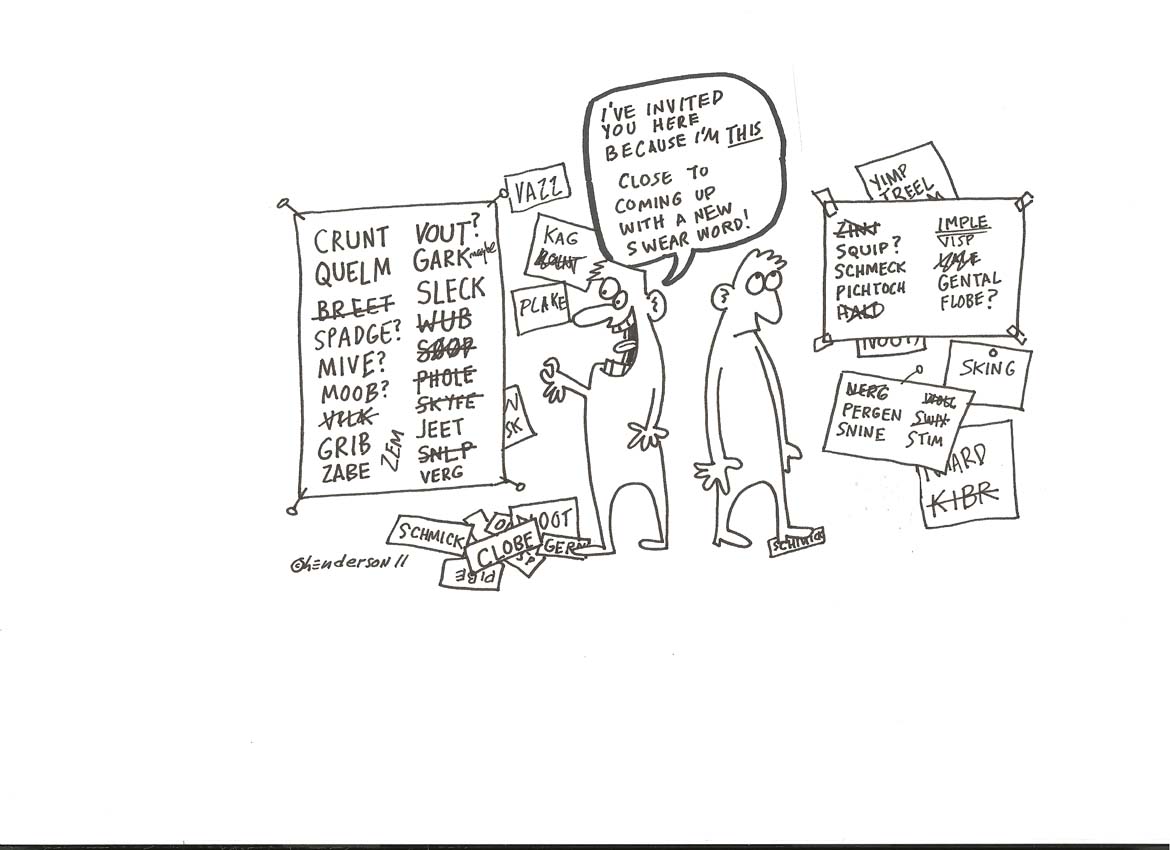 I'VE INVITED
YOU HERE
BECAUSE I'M THIS
CLOSE TO
COMING UP
WITH A NEW
SWEAR WORD!
CRUNT
QUELM
BREET
SPADGE?
MIVE?
MOOB?
GRIB
ZABE
ZEM
VOUT?
GARK maybe
SLECK
WUB
PHOLE
SKYFE
JEET
SNLP
VERG
VAZZ
KAG
PLAKE
SK
SCHMICK
CLOBE
OOT
GERN
PIBE
SP
©HENDERSON 11
YIMP
TREEL
ZINK
SQUIP?
SCHMECK
PICHTOCH
HALD
IMPLE
VISP
GENTAL
FLOBE?
NOOT
SKING
NERG
PERGEN
SNINE
STIM
ARD
KIBR